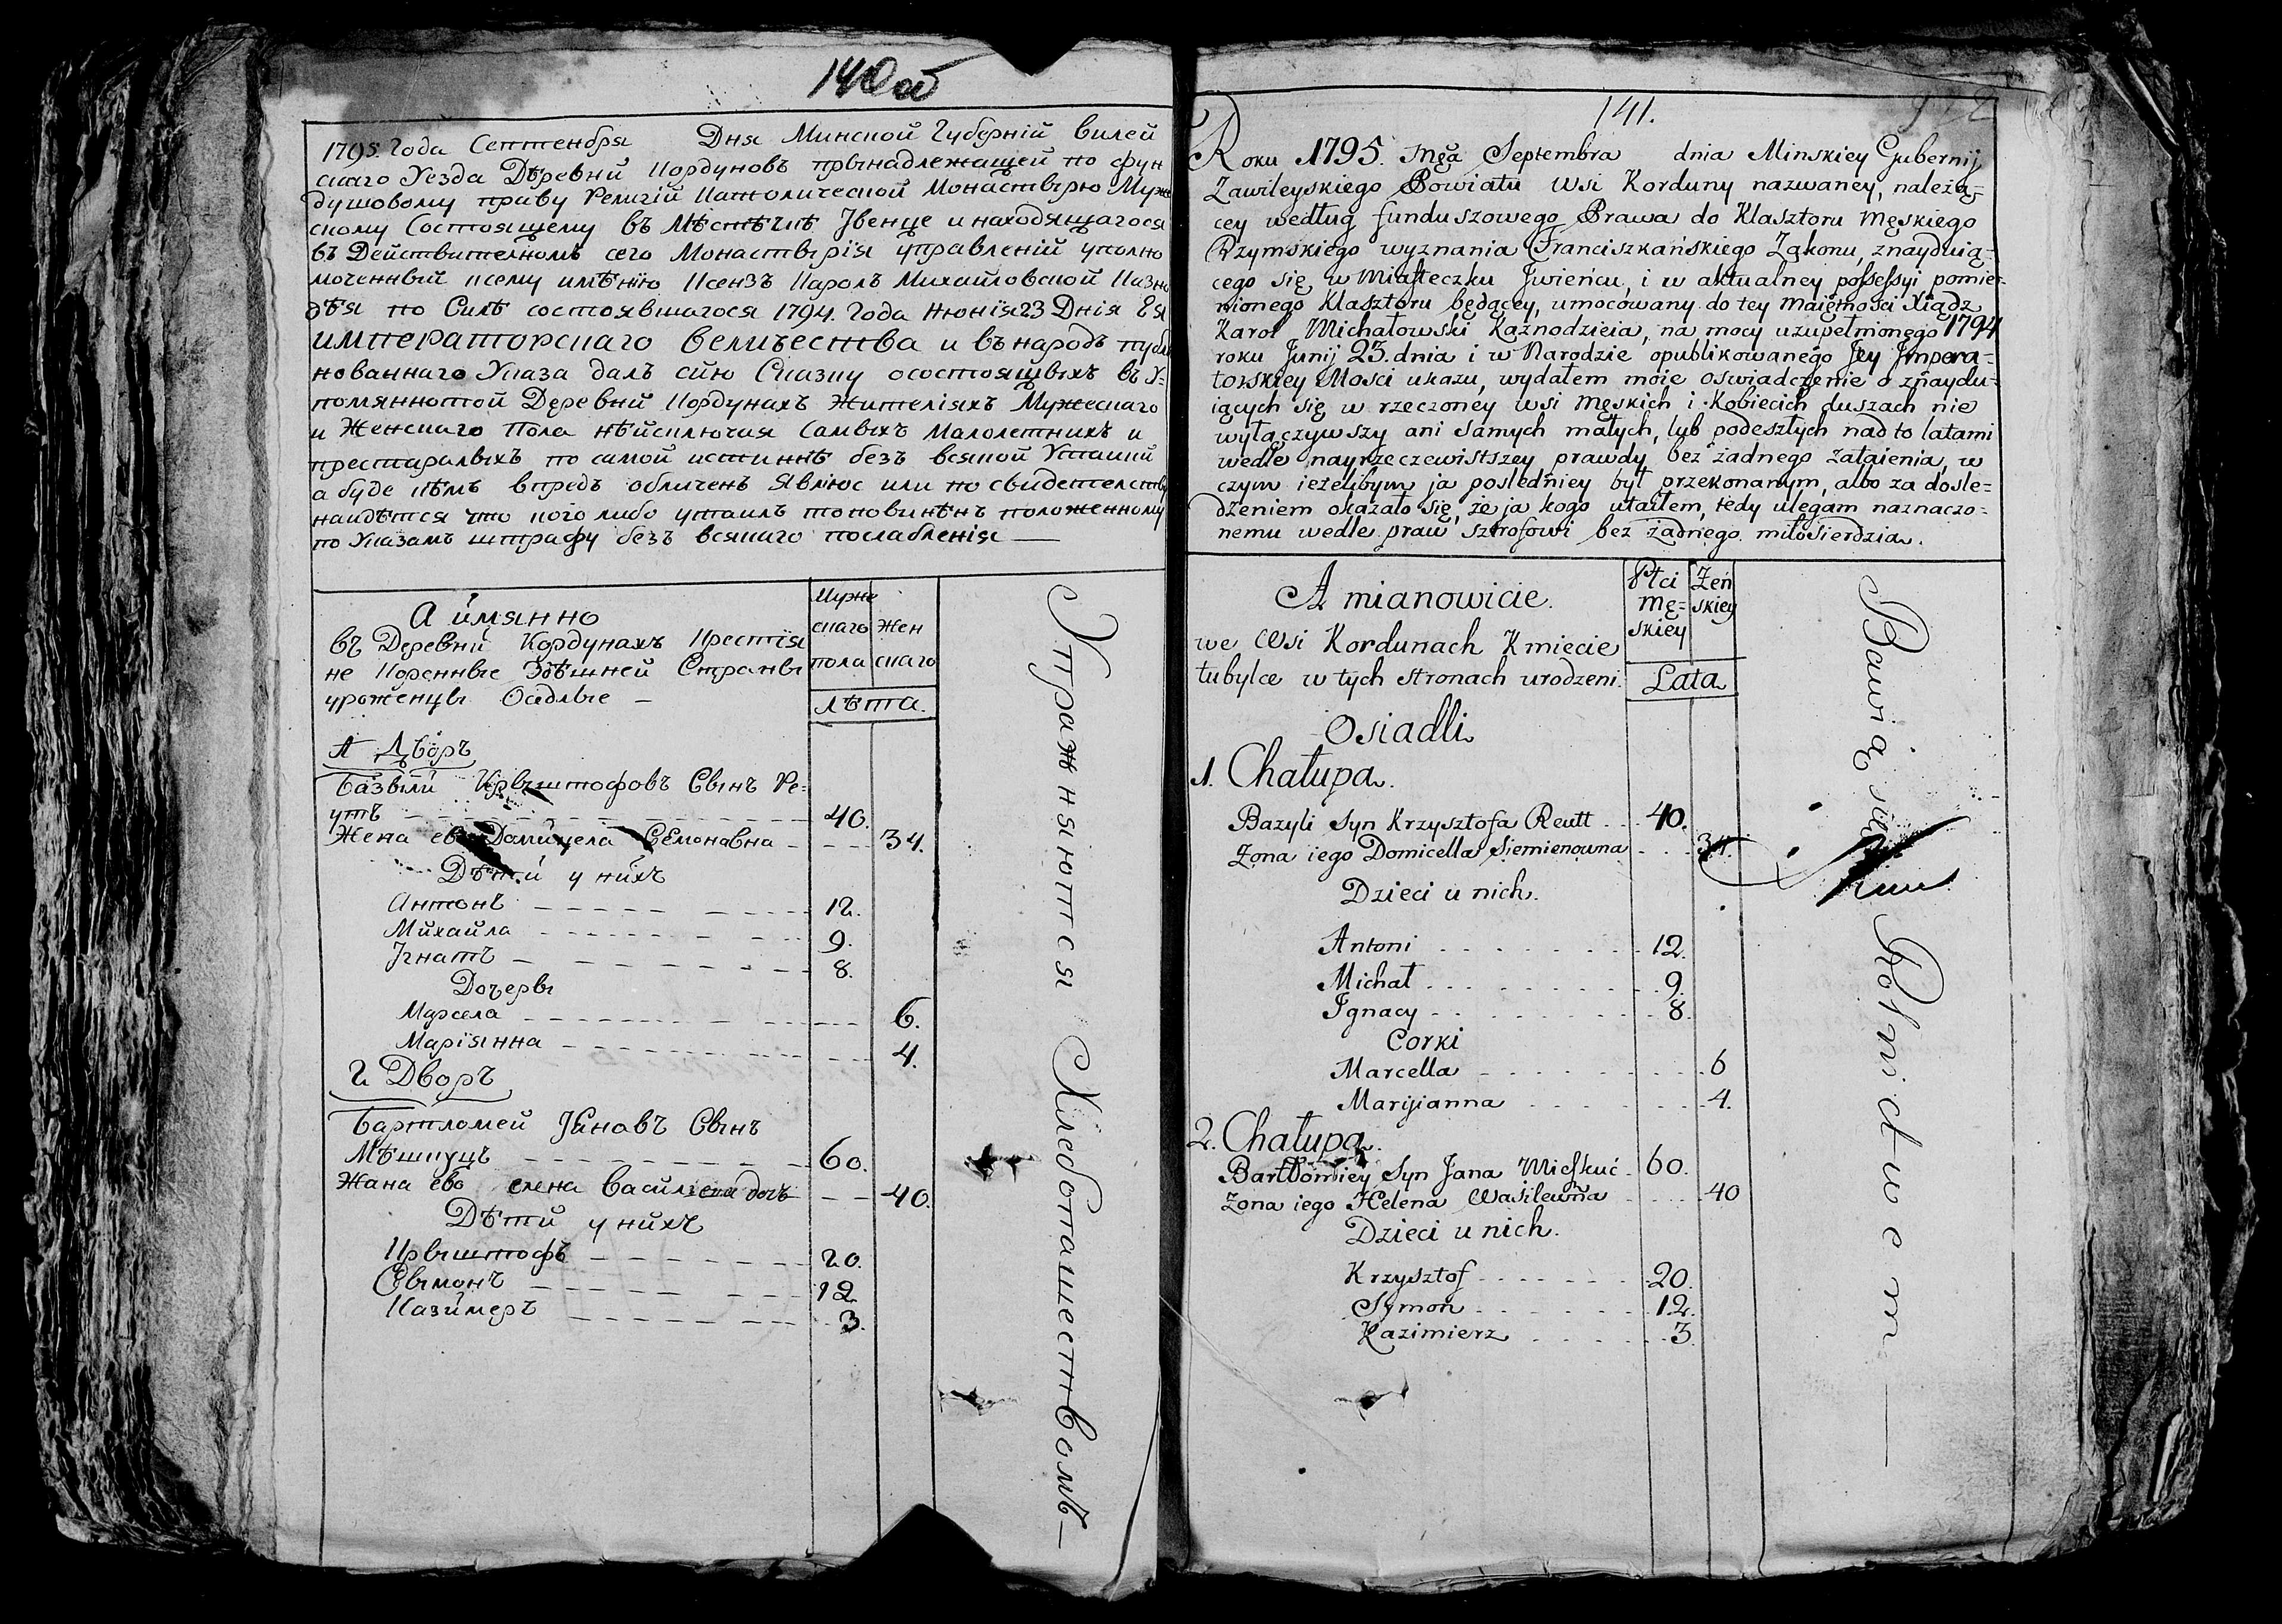 140 об
1795. Года Септтембря Дня Минской Губерній Вилей
скаго Уезда Дѣревни Кордуновъ прынадлежащей по фун
душовому праву Религій Католической Монастырю Муж
скому Состоящему въ Мѣстѣчкѣ Івенце и находящагося
въ Действителномъ сего Монастырія Управленій уполно
моченный ксему имѣнію Ксензъ Кароль Михайловской Казно
дѣя по Силѣ состоявшагося 1794. Года Июнія 23 Днія Ея
императорскаго Величества и въ народъ публи
кованнаго Указа далъ сію Сказку осостоящыхъ въ У=
помянното́й Деревни Кордунахъ Жителіяхъ Мужескаго
и Женскаго Пола нѣйсключая Самыхъ Малолетнихъ и
престарелыхъ по самой истиннѣ безъ всякой Утайки
а буде кѣмъ впредъ обличенъ Явлюс или по свидетелству
найдѣтся что кого либо утаилъ то повинѣнъ положенному
по Указамъ штрафу безъ всякаго послабленія —
А имянно
въ Деревни Кордунахъ Крестія
не Коренные Здѣшней Страны
уроженцы Осѣдлые —
Муже
скаго
пола
Жен
скаго
Лѣта.
1 Дворъ
Базыли Крыштофовъ Сынъ Ре=
утъ 40.
Жена ево Домицела Семоновна 34.
Дѣти у нихъ
Антонъ 12.
Михайла 9.
Ігнатъ 8.
Дочеры
Марсела 6.
Маріянна 4.
2 Дворъ
Бартломей Яновъ Сынъ
Мѣшкуцъ 60.
Жана ево елена Василева дочъ 40.
Дѣти у нихъ
Крыштофъ 20.
Сымонъ 12
Казимеръ 3.
Упражняются Хлебопашествомъ —
141.
Roku 1795. Mca Septembra dnia Minskiey Gubernij
Zawileyskiego Powiatu Wsi Korduny nazwaney, należą=
cey według funduszowego Prawa do Klasztoru Męskiego
Rzymskiego wyznania Franciszkańskiego Zakonu, znayduią=
cego się w Miasteczku Iwieńcu, i w aktualney possessyi pomie=
nionego Klasztoru będącey, umocowany do tey Maiętności Xiądz
Karol Michałowski Kaznodzieia, na mocy uzupełnionego 1794
roku Junij 23. dnia i w Narodzie opublikowanego Jey Impera=
torskiey Mości ukazu, wydałem moie oswiadczenie o znaydu=
iących się w rzeczoney wsi Męskich i Kobiecich duszach nie
wyłączywszy ani samych małych, lub podeszłych nad to latami
wedle nayrzeczewistszey prawdy bez żadnego zataienia, w
czym ieżelibym ja posledniey był przekonanym, albo za dosle=
dzeniem okazało się, że ja kogo utaiłem, tedy ulegam naznaczo=
nemu wedle praw sztrofowi bez żadnego miłosierdzia.
A mianowicie.
we Wsi Kordunach Kmiecie
tubylce w tych stronach urodzeni.
Osiadli
Płci
Mę=
skiey
Żeń
skiey
Lata
1. Chałupa.
Bazyli Syn Krzysztofa Reutt 40.
Żona iego Domicella Siemienowna 34.
Dzieci u nich.
Antoni 12.
Michał 9.
Ignacy 8.
Corki
Marcella 6
Maryianna 4.
2. Chałupa.
Bartłomiey Syn Jana Mieszkuć 60.
Żona iego Helena Wasilewna 40
Dzieci u nich.
Krzysztof 20.
Symon 12.
Kazimierz 3
Bawią się Rolnictwem —